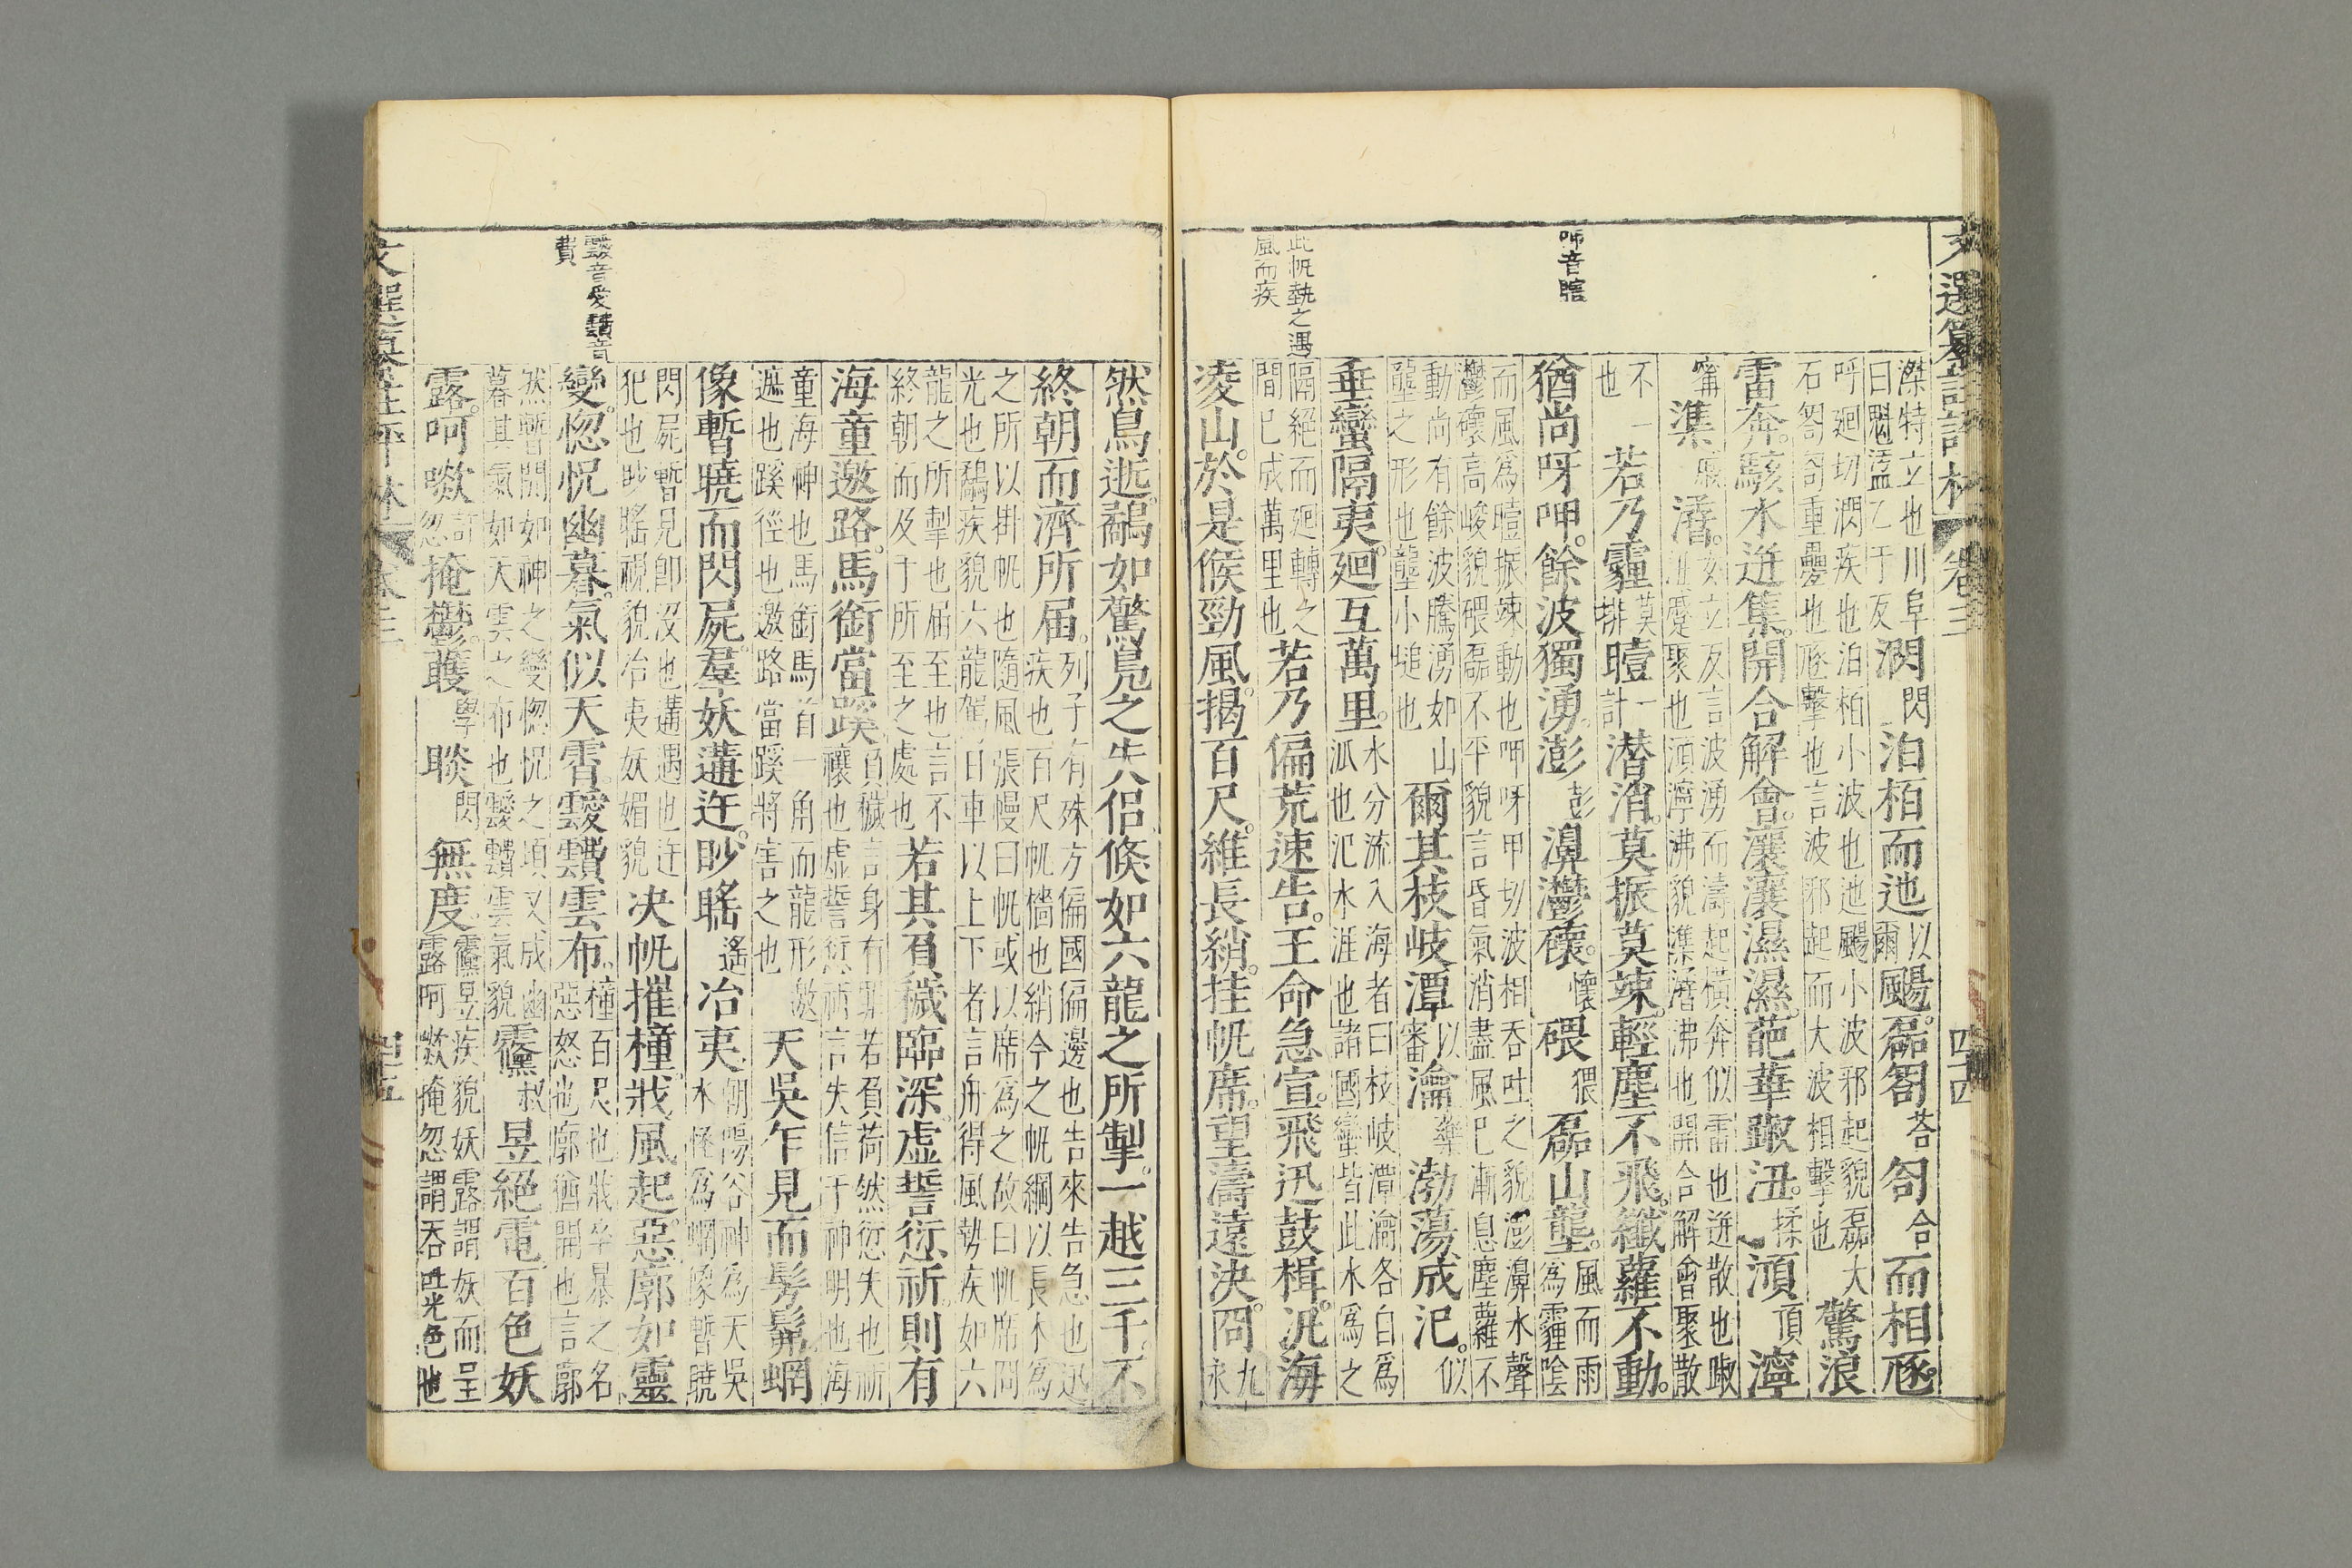 文選纂註評林 卷三 四十四
滐特立也川阜曰魁溘乙于反㴸閃泊栢而迆以爾颺磊匒荅匌合而相豗
呼廻切㴸疾也泊栢小波也迆颺小波邪起貌磊大石匒匌重疊也豗擊也言波邪起而大波相擊也驚浪
雷奔駭水迸集開合解會瀼瀼濕濕葩華踧沑揉澒頂濘
甯潗㵫㳫立反言波湧而濤起橫奔似雷也迸散也踧沑蹙聚也澒濘沸貌潗㵫沸也開合解會聚散
不一也若乃霾莫排曀一計潛消莫振莫竦輕塵不飛纖蘿不動
猶尚呀呷餘波獨湧澎彭濞灪𥗴懷碨猥磊山壟風而雨為霾陰
而風為曀振竦動也呷呀甲切波相吞吐之貌澎濞水聲灪𥗴高峻貌碨磊不平貌言昏氣消盡風已漸息塵蘿不
動尚有餘波騰湧如山壟之形也壟小塠也爾其枝岐潭以審瀹藥渤蕩成汜似
垂蠻隔夷廻互萬里水分流入海者曰枝岐潭瀹各白為泒也汜水涯也諸國蠻皆此水為之
隔絕而廻轉之間已成萬里也若乃偏荒速告王命急宣飛迅鼓楫汎海
凌山於是候勁風揭百尺維長綃挂帆席望濤遠決冏九永
呷音瞎
此帆勢之遇風而疾
然鳥逝鷸如驚鳧之失侶倏如六龍之所掣一越三千不
終朝而濟所届列子有殊方偏國偏邊也告來告急也迅疾也百尺帆檣也綃今之帆綱以長木為
之所以掛帆也隨風張幔曰帆或以席為之故曰帆席冏光也鷸疾貌六龍駕日車以上下者言舟得風勢疾如六
龍之所掣也届至也言不終朝而及于所至之處也若其負穢臨深虛誓愆祈則有
海童邀路馬銜當蹊負穢言身有罪若負荷然愆失也祈禳也虛誓愆祈言失信于神明也海
童海神也馬銜馬首一角而龍形邀遮也蹊徑也邀路當蹊將害之也天吳乍見而髣髴蝄
像暫曉而閃屍羣妖遘迕眇䁘遙冶夷朝陽谷神為天吳水怪為蝄像暫曉
閃屍暫見卽沒也遘遇也迕犯也眇䁘視貌冶夷妖媚貌决帆摧橦戕風起惡廓如靈
變惚怳幽暮氣似天霄靉靅雲布橦百尺也戕卒暴之名惡怒也廓猶開也言廓
然暫開如神之變惚怳之頃又成幽暮其氣如天雲之布也靉靅雲氣貌䨹叔昱絕電百色妖
露呵嗽許忽掩鬱矆學睒閃無度䨹昱疾貌妖露謂妖而呈露呵嗽掩忽謂吞吐光色也
靉音愛靅音費
文選纂註評林 卷三 四十五